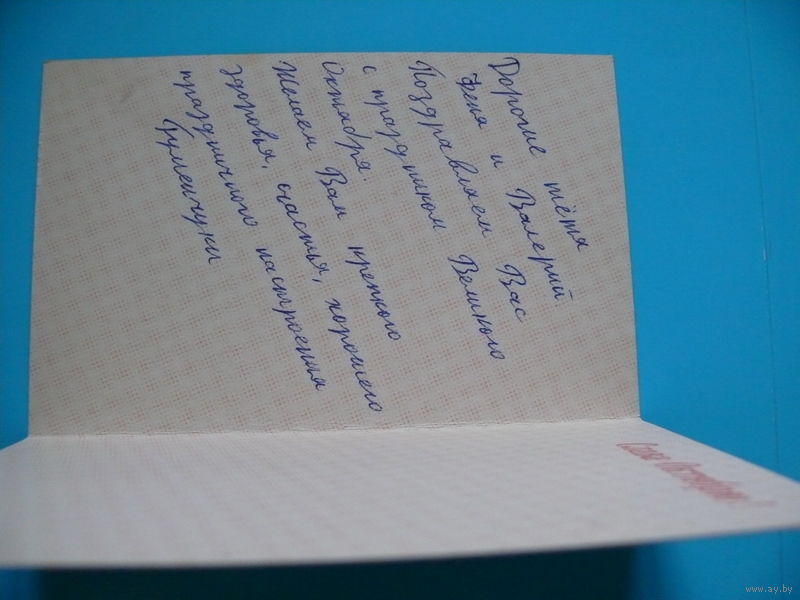 Дорогие тётя
Феня и Валерий.
Поздравляем Вас
с праздником Великого
Октября.
Желаем Вам крепкого
здоровья, счастья, хорошего
праздничного настроения
Гуменчуки
Слава Октябрю!
www.ay.by